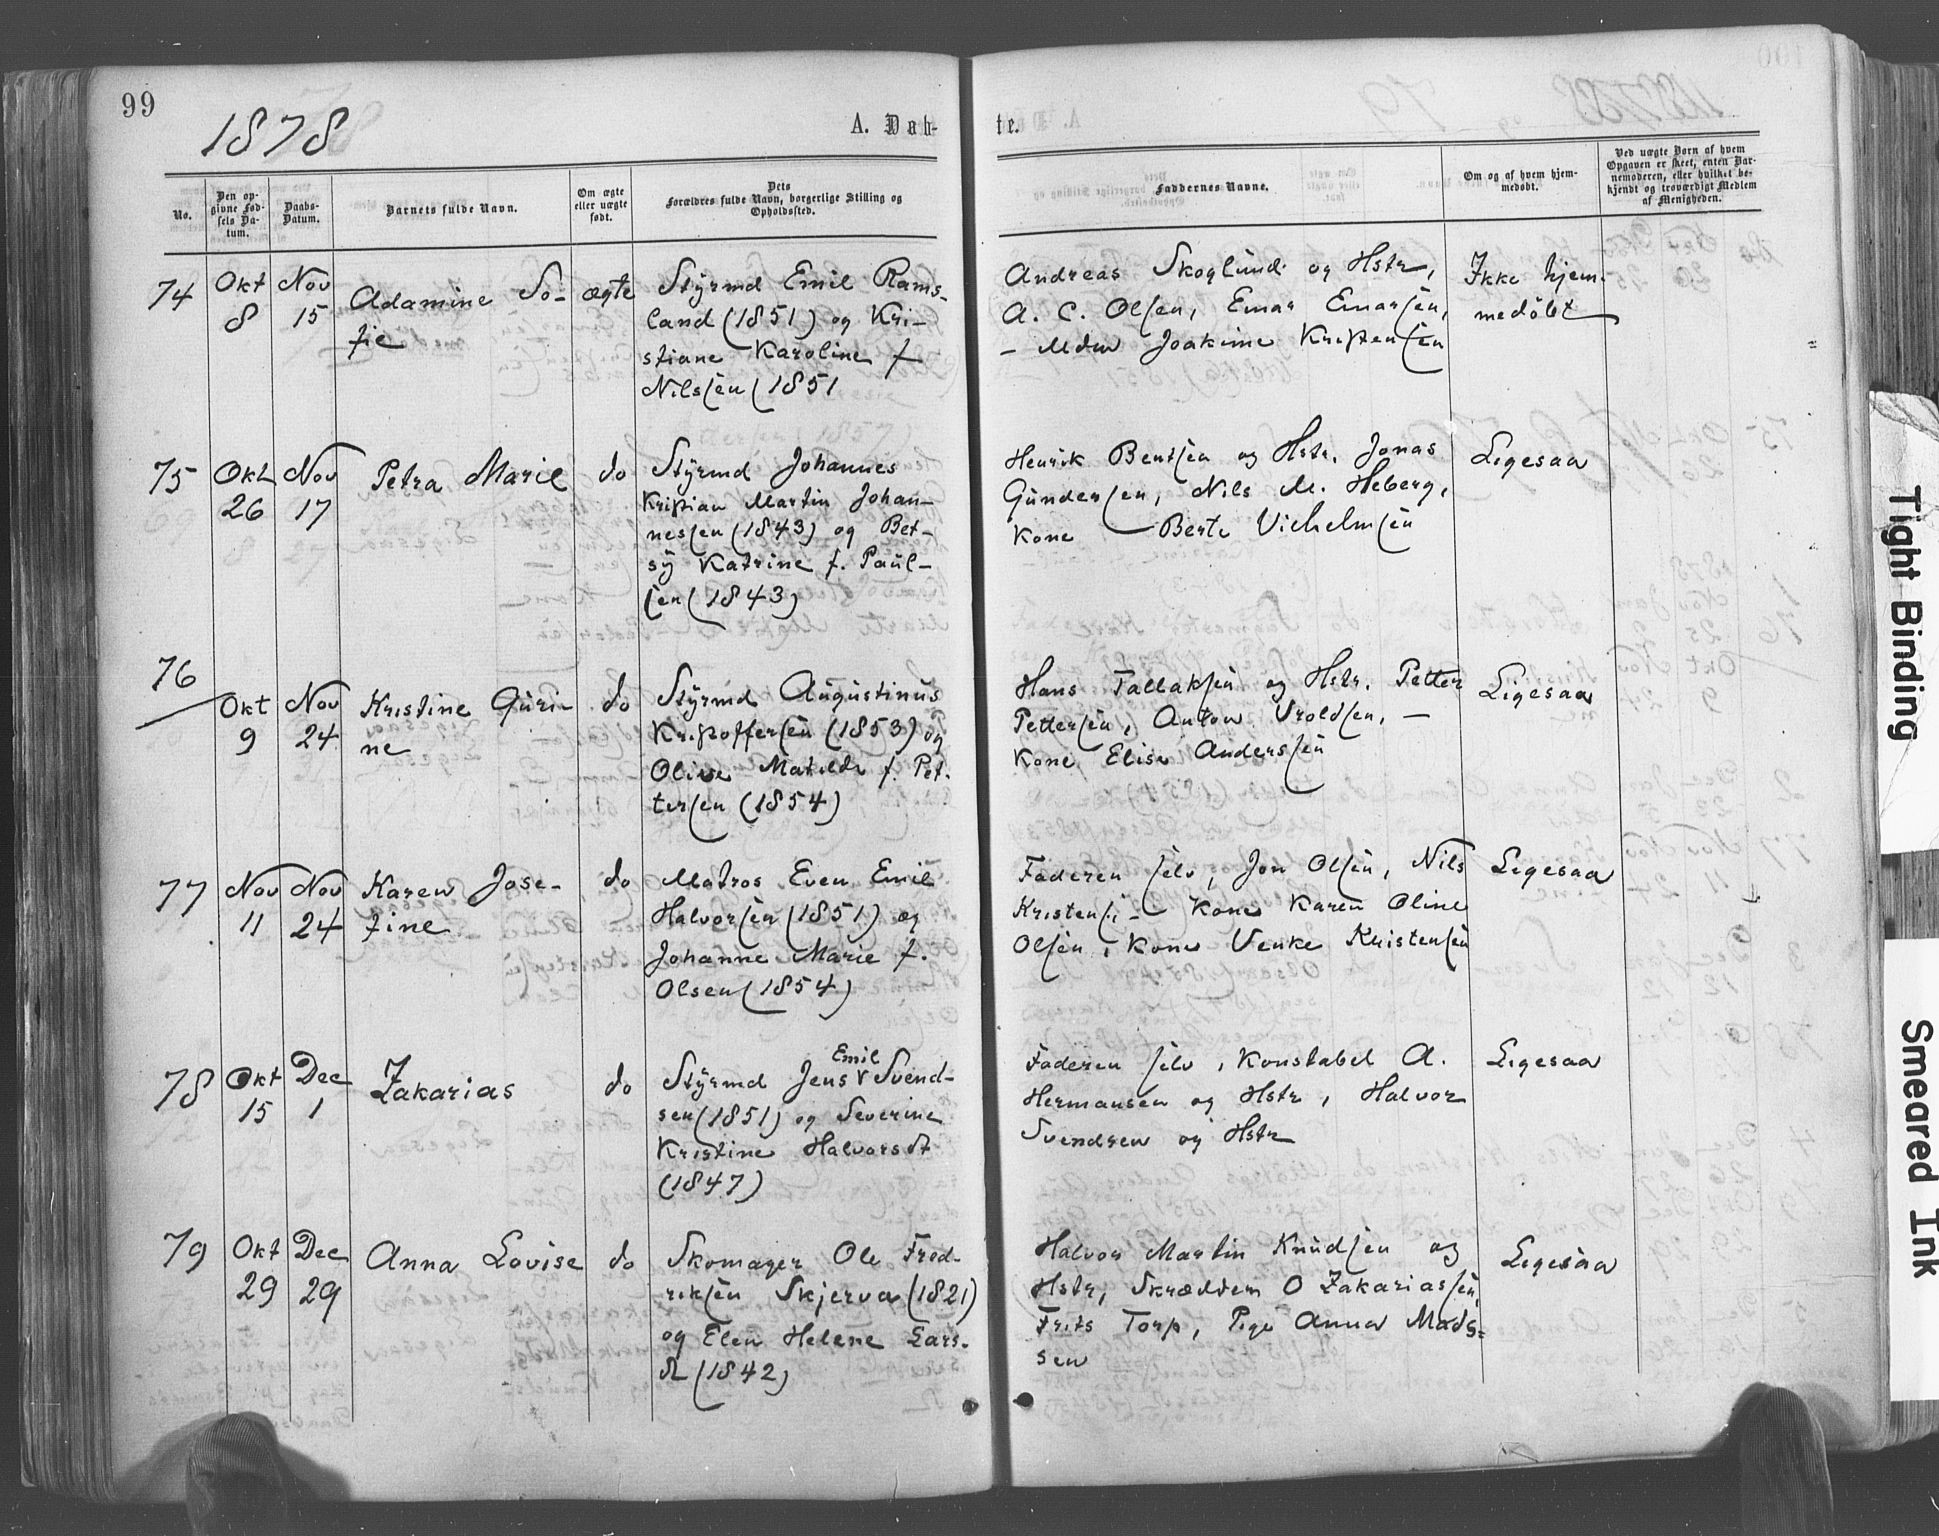 99
1878
A. Døb-
te.
No.
Den op-
givne Fød-
sels Da-
tum.
Daabs-
Datum.
Barnets fulde Navn.
Om ægte
eller uægte
født.
Dets
Forældres fulde Navn, borgerlige Stilling og
Opholdssted.
Faddernes Navne.
Om og af hvem hjem-
medøbt.
Ved uægte Børn af hvem
Opgaven er skeet, enten Bar-
nemoderen, eller hvilket be-
kjendt og troværdigt Medlem
af Menigheden.
74
Okt
8
Nov
15
Adamine So-
fie
ægte
Styrmd Emil Rams-
land (1851) og Kri-
stiane Karoline f
Nilssen (1851
Andreas Skoglund og Hstr,
A. C. Olsen, Einar Einarsen,
– Mdm Joakime Kristensen
Ikke hjem-
medøbt
75
Okt
26
Nov
17
Petra Marie
do
Styrmd Johannes
Kristian Martin Johan-
nessen (1843) og Bet-
sy Katrine f. Paul-
sen (1843)
Henrik Bentsen og Hstr, Jonas
Gundersen, Nils M. Heberg,
Kone — Berte Vilhelmsen
Ligesaa
76
Okt
9
Nov
24
Kristine Guri-
ne
do
Styrmd Augustinus
Kristoffersen (1853) og
Olive Matilde f. Pet-
tersen (1854)
Hans Tallaksen og Hstr. Petter
Pettersen, Anton Vroldsen, –
Kone Elise Anderssen
Ligesaa
77
Nov
11
Nov
24
Karen Jose-
fine
do
Matros Even Emil
Halvorsen (1851) og
Johanne Marie f.
Olsen (1854)
Faderen selv, Jon Olsen, Nils
Kristensi- Kone Karen Oline
Olsen, Kone Venke Kristensen
Ligesaa
78
Okt
15
Dec
1
Zakarias
do
Emil
Styrmd Jens v Svend-
sen (1851) og Severine
Kristine Halvorsdt
(1847)
Faderen selv, Konstabel A.
Hermansen og Hstr, Halvor
Svendsen og Hstr
Ligesaa
79
Okt
29
Dec
29
Anna Lovise
do
Skomager Ole Fred-
riksen Skjerva (1821)
og Elen Helene Lars-
dt (1842)
Halvor Martin Knudsen og
Hstr, Skræddem O Zakariassen,
Frits Torp, Pige Anna Mads=
sen
Ligesaa
Tight Binding
Smeared Ink